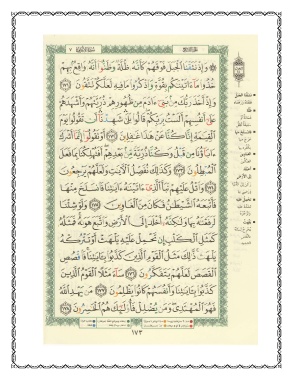 وَإِذْ نَتَقْنَا ٱلْجَبَلَ فَوْقَهُمْ كَأَنَّهُۥ ظُلَّةٌ وَظَنُّوٓا۟ أَنَّهُۥ وَاقِعٌۢ بِهِمْ
خُذُوا۟ مَآ ءَاتَيْنَٰكُم بِقُوَّةٍ وَٱذْكُرُوا۟ مَا فِيهِ لَعَلَّكُمْ تَتَّقُونَ ﴿١٧١﴾
وَإِذْ أَخَذَ رَبُّكَ مِنۢ بَنِىٓ ءَادَمَ مِن ظُهُورِهِمْ ذُرِّيَّتَهُمْ وَأَشْهَدَهُمْ
عَلَىٰٓ أَنفُسِهِمْ أَلَسْتُ بِرَبِّكُمْ قَالُوا۟ بَلَىٰ شَهِدْنَآ أَن تَقُولُوا۟ يَوْمَ
ٱلْقِيَٰمَةِ إِنَّا كُنَّا عَنْ هَٰذَا غَٰفِلِينَ ﴿١٧٢﴾ أَوْ تَقُولُوٓا۟ إِنَّمَآ أَشْرَكَ
ءَابَآؤُنَا مِن قَبْلُ وَكُنَّا ذُرِّيَّةً مِّنۢ بَعْدِهِمْ أَفَتُهْلِكُنَا بِمَا فَعَلَ
ٱلْمُبْطِلُونَ ﴿١٧٣﴾ وَكَذَٰلِكَ نُفَصِّلُ ٱلْءَايَٰتِ وَلَعَلَّهُمْ يَرْجِعُونَ
﴿١٧٤﴾ وَٱتْلُ عَلَيْهِمْ نَبَأَ ٱلَّذِىٓ ءَاتَيْنَٰهُ ءَايَٰتِنَا فَٱنسَلَخَ مِنْهَا
فَأَتْبَعَهُ ٱلشَّيْطَٰنُ فَكَانَ مِنَ ٱلْغَاوِينَ ﴿١٧٥﴾ وَلَوْ شِئْنَا
لَرَفَعْنَٰهُ بِهَا وَلَٰكِنَّهُۥٓ أَخْلَدَ إِلَى ٱلْأَرْضِ وَٱتَّبَعَ هَوَىٰهُ فَمَثَلُهُۥ
كَمَثَلِ ٱلْكَلْبِ إِن تَحْمِلْ عَلَيْهِ يَلْهَثْ أَوْ تَتْرُكْهُ
يَلْهَث ذَّٰلِكَ مَثَلُ ٱلْقَوْمِ ٱلَّذِينَ كَذَّبُوا۟ بِـَٔايَٰتِنَا فَٱقْصُصِ
ٱلْقَصَصَ لَعَلَّهُمْ يَتَفَكَّرُونَ ﴿١٧٦﴾ سَآءَ مَثَلًا ٱلْقَوْمُ ٱلَّذِينَ
كَذَّبُوا۟ بِـَٔايَٰتِنَا وَأَنفُسَهُمْ كَانُوا۟ يَظْلِمُونَ ﴿١٧٧﴾ مَن يَهْدِ ٱللَّهُ
فَهُوَ ٱلْمُهْتَدِى وَمَن يُضْلِلْ فَأُو۟لَٰٓئِكَ هُمُ ٱلْخَٰسِرُونَ ﴿١٧٨﴾
١٧٣